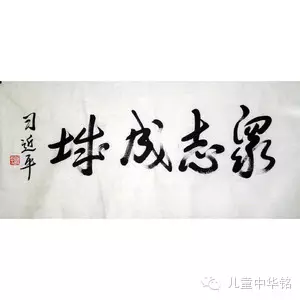 眾志成城
习近平
儿童中华铭